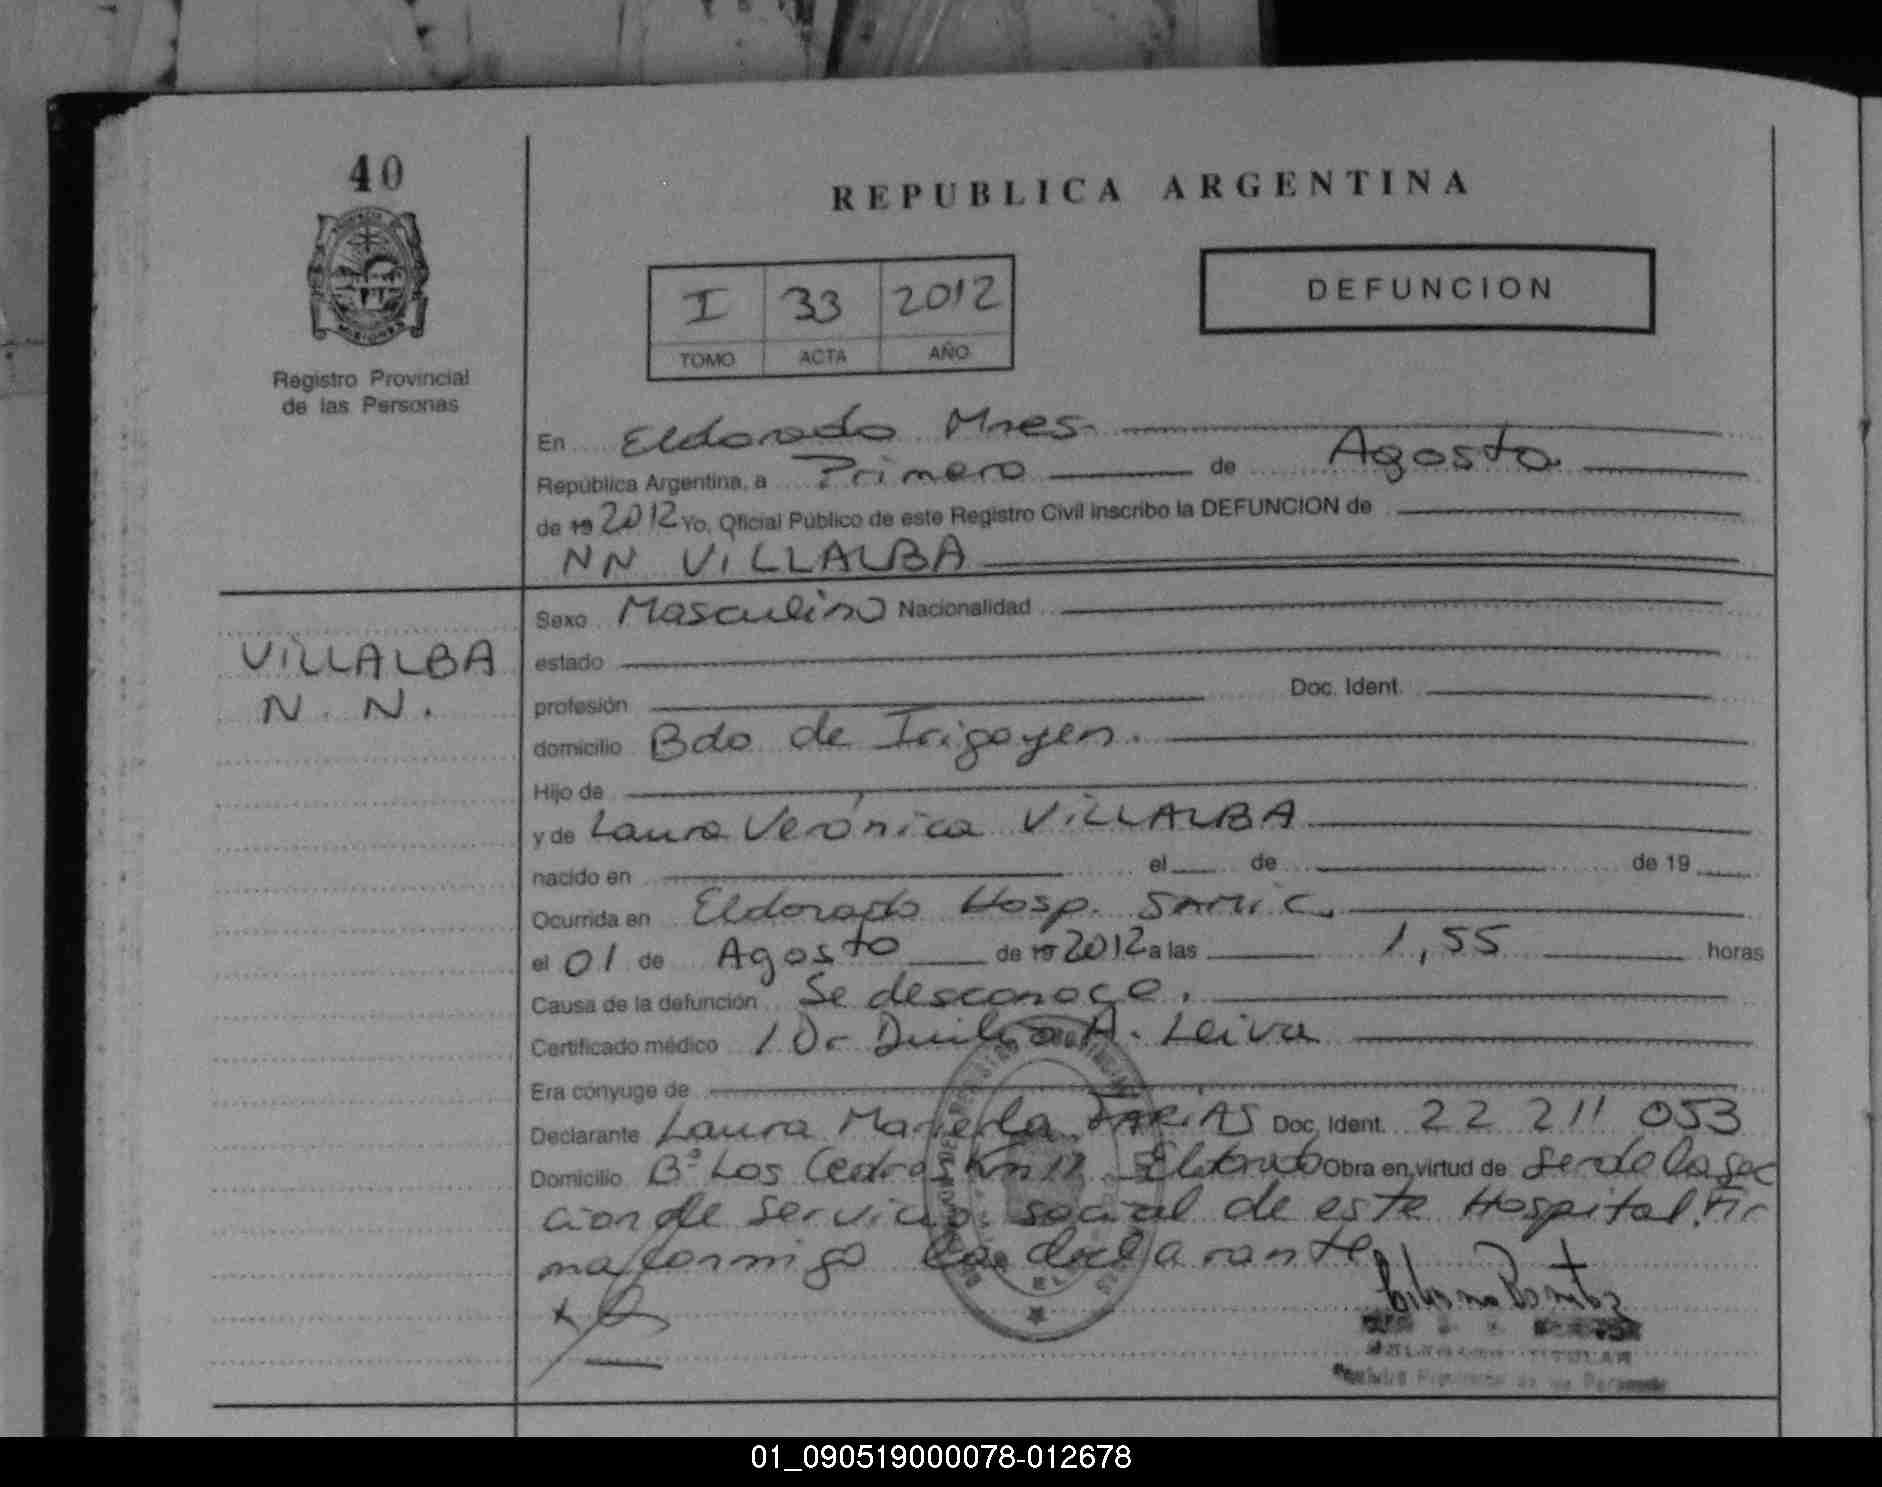 40
REPUBLICA ARGENTINA
I 33 2012
TOMO ACTA AÑO
DEFUNCION
Registro Provincial
de las Personas
En Eldorado Mnes.
República Argentina, a Primero de Agosto
de 19 2012 Yo, Oficial Público de este Registro Civil inscribo la DEFUNCION de
NN VILLALBA
VILLALBA
N. N.
Sexo Masculino Nacionalidad
estado
profesión Doc. Ident.
domicilio Bdo de Irigoyen.
Hijo de
y de Laura Verónica VILLALBA
nacido en el de de 19
Ocurrida en Eldorado Hosp. SAMIC.
el 01 de Agosto de 19 2012 a las 1,55 horas
Causa de la defunción Se desconoce.
Certificado médico Dr Duilio A. Leiva
Era cónyuge de
Declarante Laura Mariela FARIAS Doc. Ident. 22 211 053
Domicilio Bº Los Cedros Km 11 Eldorado Obra en virtud de ser de la sec
cion de servicio social de este Hospital. Fir
ma conmigo la declarante
TITULAR
01_090519000078-012678